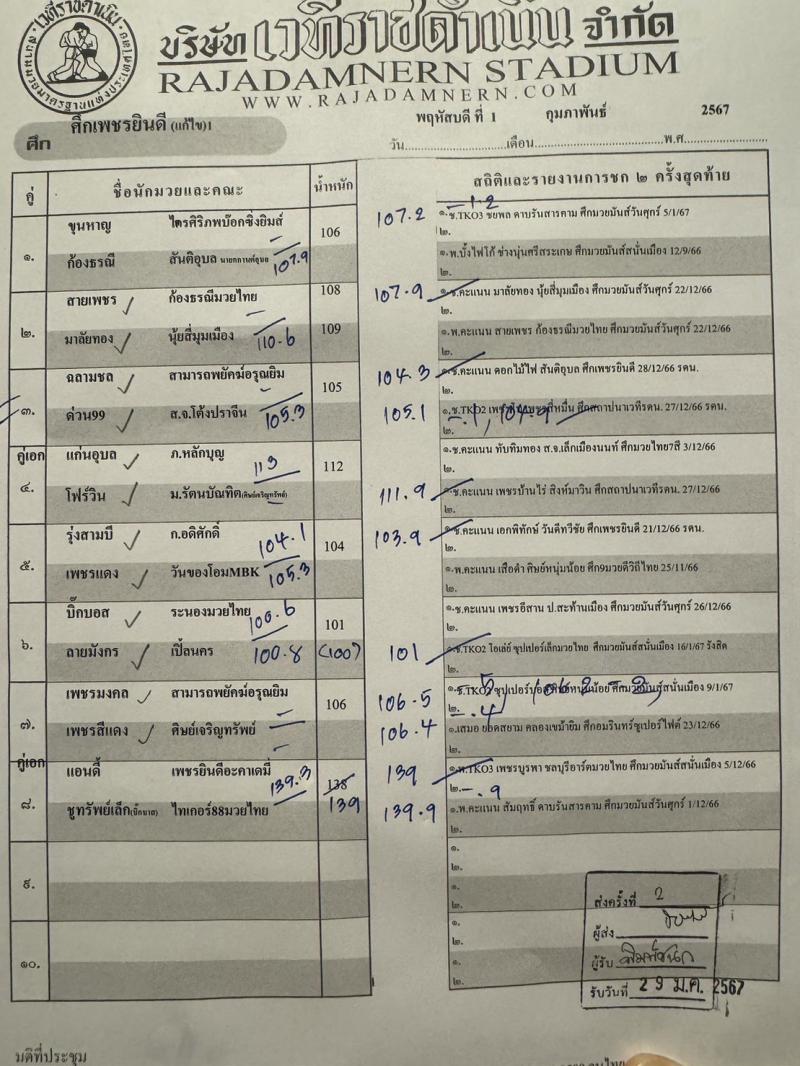 เวทีราชดำเนิน
บริษัท เวทีราชดำเนิน จำกัด
RAJADAMNERN STADIUM
WWW.RAJADAMNERN.COM
ศึก ศึกเพชรยินดี (แก้ไข)1
วัน พฤหัสบดี ที่ 1 เดือน กุมภาพันธ์ พ.ศ. 2567
คู่ ชื่อนักมวยและคณะ น้ำหนัก สถิติและรายงานการชก ๒ ครั้งสุดท้าย
๑. ขุนหาญ ไตรศิริภพบ๊อกซิ่งยิมส์ 106 107.2 ๑.ช.TKO3 ชัยพล ดาบรันสารคาม ศึกมวยมันส์วันศุกร์ 5/1/67
๒.
ก้องธรณี สันติอุบล 107.9 ๑.พ.บั้งไฟโก้ ช่างนุ่นศรีสระเกษ ศึกมวยมันส์สนั่นเมือง 12/9/66
๒.
๒. สายเพชร ก้องธรณีมวยไทย 108 107.9 ๑.ช.คะแนน มาลัยทอง นุ้ยสี่มุมเมือง ศึกมวยมันส์วันศุกร์ 22/12/66
๒.
มาลัยทอง นุ้ยสี่มุมเมือง 110.6 109 ๑.พ.คะแนน สายเพชร ก้องธรณีมวยไทย ศึกมวยมันส์วันศุกร์ 22/12/66
๒.
๓. ฉลามชล สามารถพยัคฆ์อรุณยิม 105 104.3 ๑.ช.คะแนน ดอกไม้ไฟ สันติอุบล ศึกเพชรยินดี 28/12/66 รดน.
๒.
ด่วน99 ส.จ.โต้งปราจีน 105.3 105.1 ๑.ช.TKO2 ศึกสถาปนาเวทีรดน. 27/12/66 รดน.
๒.
คู่เอก
๔. แก่นอุบล ภ.หลักบุญ 113 112 ๑.ช.คะแนน ทับทิมทอง ส.จ.เล็กเมืองนนท์ ศึกมวยไทย7สี 3/12/66
๒.
โฟร์วิน ม.รัตนบัณฑิต(ศิษย์เจริญทรัพย์) 111.9 ๑.ช.คะแนน เพชรบ้านไร่ สิงห์มาวิน ศึกสถาปนาเวทีรดน. 27/12/66
๒.
๕. รุ่งสามบี ก.อดิศักดิ์ 104.1 104 103.9 ๑.ช.คะแนน เอกพิทักษ์ วันดีทวีชัย ศึกเพชรยินดี 21/12/66 รดน.
๒.
เพชรแดง วันของโอมMBK 105.3 ๑.พ.คะแนน เสือดำ ศิษย์หนุ่มน้อย ศึก9มวยดีวิถีไทย 25/11/66
๒.
๖. บิ๊กบอส ระนองมวยไทย 100.6 101 ๑.ช.คะแนน เพชรอีสาน ป.สะท้านเมือง ศึกมวยมันส์วันศุกร์ 26/12/66
๒.
ลายมังกร เปี้ลนคร 100.8 (100) 101 ๑.ช.TKO2 ไอเล่ย์ ซุปเปอร์เล็กมวยไทย ศึกมวยมันส์สนั่นเมือง 16/1/67 รังสิต
๒.
๗. เพชรมงคล สามารถพยัคฆ์อรุณยิม 106 106.5 ๑.ช.TKO ศึกมวยมันส์สนั่นเมือง 9/1/67
๒. -.4
เพชรสีแดง ศิษย์เจริญทรัพย์ 106.4 ๑.เสมอ ยอดสยาม คลองเขม้ายิม ศึกอมรินทร์ซูเปอร์ไฟต์ 23/12/66
๒.
คู่เอก
๘. แอนดี้ เพชรยินดีอะคาเดมี่ 139.3 138 139 ๑.พ.TKO3 เพชรบูรพา ชลบุรีอาร์ตมวยไทย ศึกมวยมันส์สนั่นเมือง 5/12/66
๒. -.9
ชูทรัพย์เล็ก(บิ๊กบาส) ไทเกอร์88มวยไทย 139 139.9 ๑.พ.คะแนน สัมฤทธิ์ ดาบรันสารคาม ศึกมวยมันส์วันศุกร์ 1/12/66
๒.
๙. ๑.
๒.
๑.
๒.
๑๐. ๑.
๒.
๑.
๒.
ส่งครั้งที่ 2
ผู้ส่ง
ผู้รับ พิมพ์ชนก
รับวันที่ 29 ม.ค. 2567
มติที่ประชุม